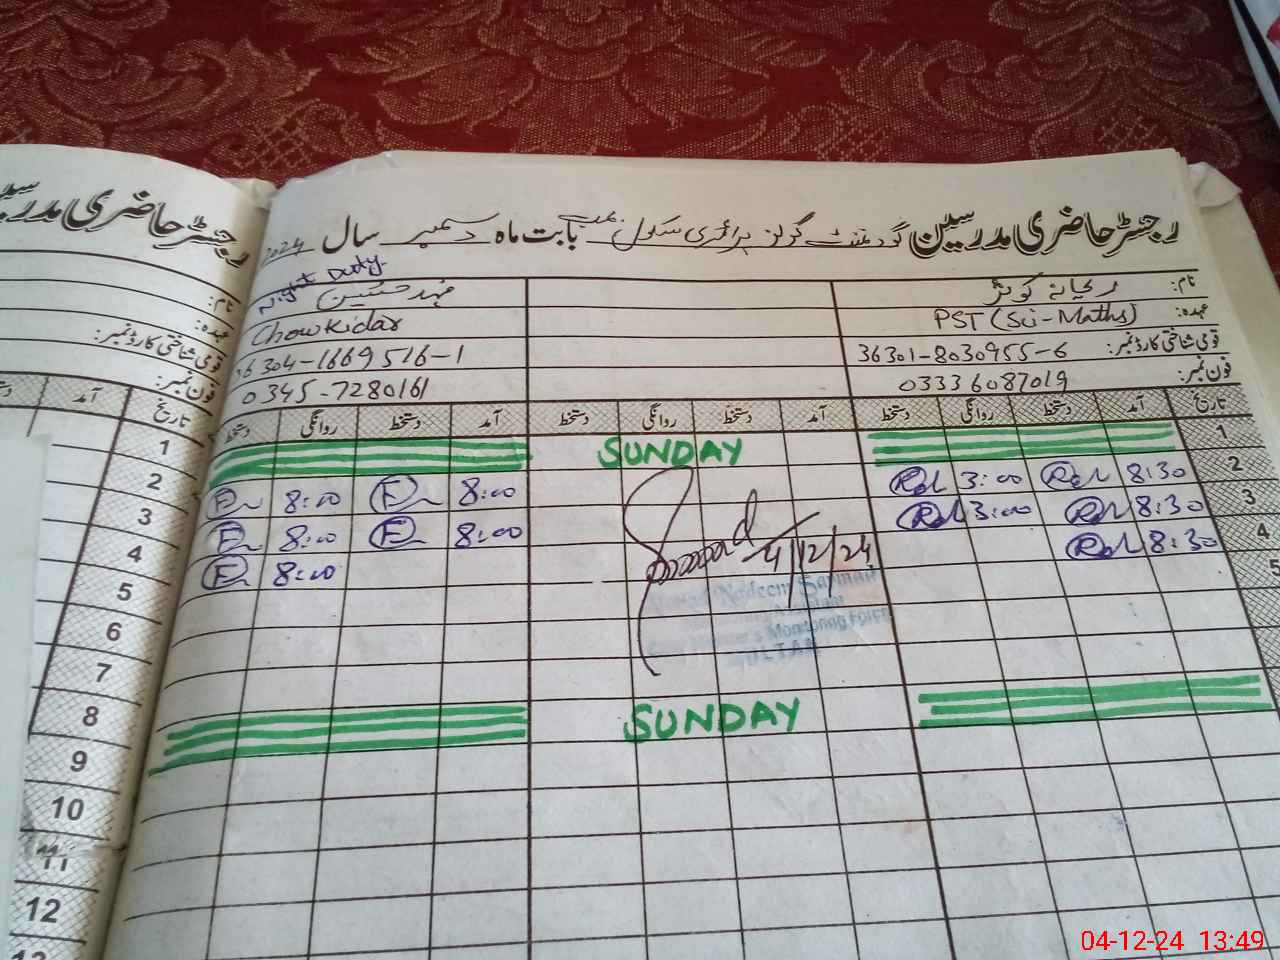 رجسٹر حاضری مدرسین گورنمنٹ گرلز پرائمری سکول بابت ماہ دسمبر سال 2024
رجسٹر حاضری مدرسین
Night Duty.
نام: ریحانہ کوثر
عہدہ: PST (Sci-Maths) Chowkidar
قومی شناختی کارڈ نمبر: 36301-8030955-6 36304-1669516-1
فون نمبر: 03336087019 0345-7280161
نام:
عہدہ:
قومی شناختی کارڈ نمبر:
فون نمبر:
تاریخ آمد دستخط روانگی دستخط آمد دستخط روانگی دستخط آمد دستخط روانگی دستخط
تاریخ آمد
1 SUNDAY
2 8:30 3:00 8:00 8:00
3 8:30 3:00 8:00 8:00
4 8:30 8:00
5
4/12/24
Nadeem
Monitoring Force
SUNDAY
1
2
3
4
5
6
7
8
9
10
11
12
13
04-12-24 13:49